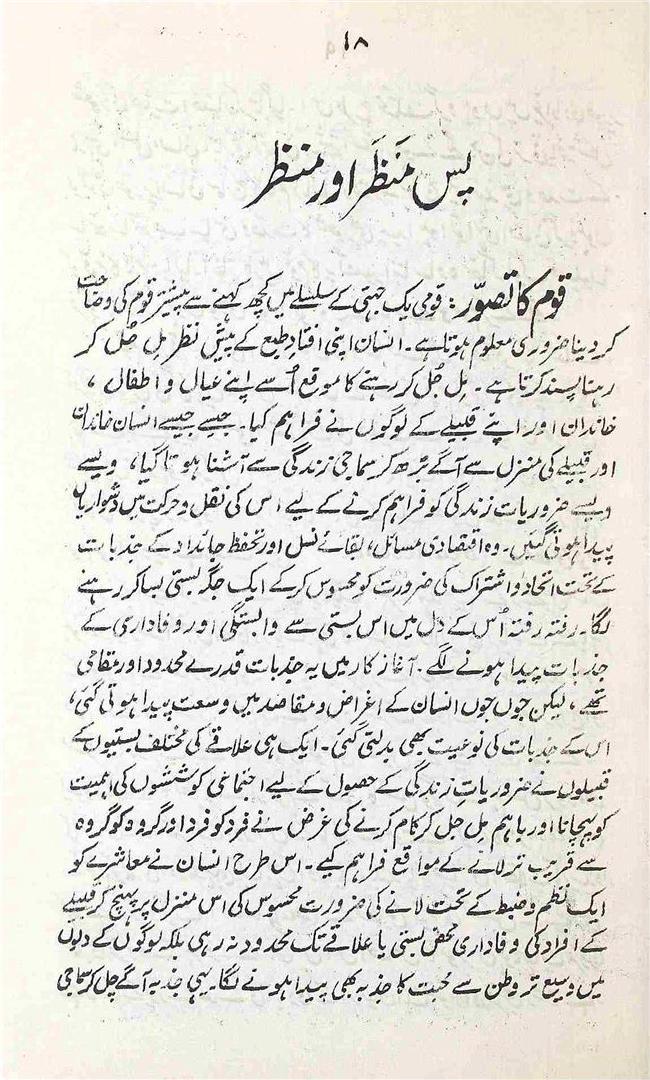 ۱۸
پس مَنظَر اور منظر
قوم کا تصوّر: قومی یک جہتی کے سلسلے میں کچھ کہنے سے پیشتر قوم کی وضاحت
کر دینا ضروری معلوم ہوتا ہے۔ انسان اپنی افتادِ طبع کے پیش نظر مِل جُل کر
رہنا پسند کرتا ہے۔ مِل جُل کر رہنے کا موقع اُسے اپنے عیال و اطفال،
خاندان اور اپنے قبیلے کے لوگوں نے فراہم کیا۔ جیسے جیسے انسان خاندان
اور قبیلے کی منزل سے آگے بڑھ کر سماجی زندگی سے آشنا ہوتا گیا، ویسے
ویسے ضروریات زندگی کو فراہم کرنے کے لیے اس کی نقل و حرکت میں دشواریاں
پیدا ہوتی گئیں۔ وہ اقتصادی مسائل، بقائے نسل اور تحفظ جائداد کے جذبات
کے تحت اتحاد و اشتراک کی ضرورت کو محسوس کر کے ایک جگہ بستی بسا کر رہنے
لگا۔ رفتہ رفتہ اُس کے دل میں اس بستی سے وابستگی اور وفاداری کے
جذبات پیدا ہونے لگے۔ آغاز کار میں یہ جذبات قدرے محدود اور مقامی
تھے، لیکن جوں جوں انسان کے اغراض و مقاصد میں وسعت پیدا ہوتی گئی،
اس کے جذبات کی نوعیت بھی بدلتی گئی۔ ایک ہی علاقے کی مختلف بستیوں کے
قبیلوں نے ضروریاتِ زندگی کے حصول کے لیے اجتماعی کوششوں کی اہمیت
کو پہچانا اور باہم مِل جل کر کام کرنے کی غرض نے فرد کو فرد اور گروہ کو گروہ
سے قریب تر لانے کے مواقع فراہم کیے۔ اس طرح انسان نے معاشرے کو
ایک نظم و ضبط کے تحت لانے کی ضرورت محسوس کی اس منزل پر پہنچ کر قبیلے
کے افراد کی وفاداری محض بستی یا علاقے تک محدود نہ رہی بلکہ لوگوں کے دلوں
میں وسیع تر وطن سے محبت کا جذبہ بھی پیدا ہونے لگا۔ یہی جذبہ آگے چل کر سماجی